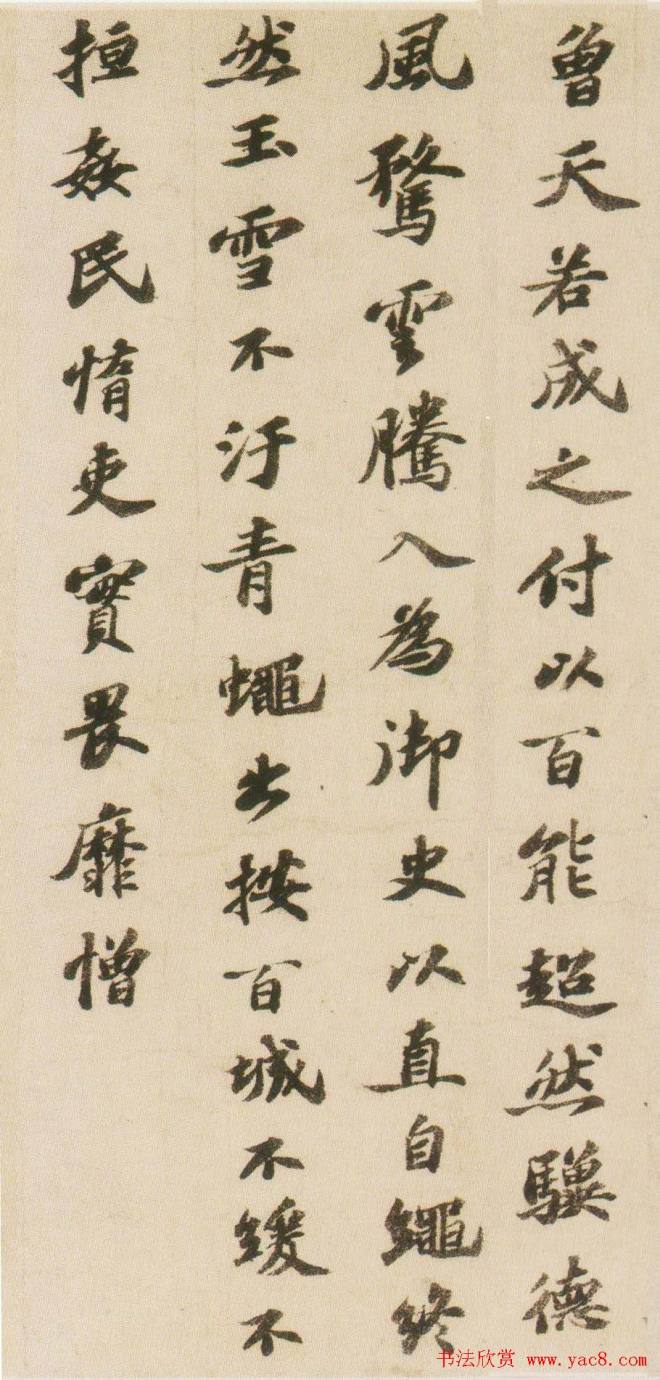 曾天若成之付以百能超然驥德
風騖雲騰入為御史以直自繩終
然玉雪不汙青蠅出按百城不緩不
搄姦民惰吏實畏靡憎
书法欣赏 www.yac8.com